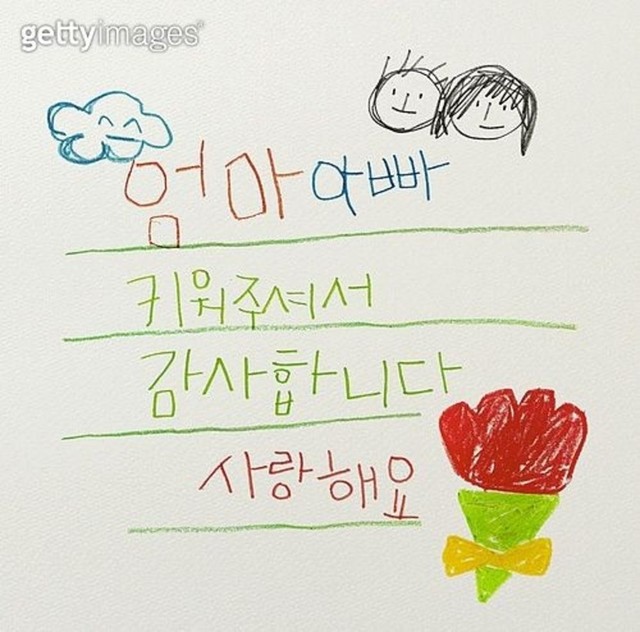 gettyimages
엄마 아빠
키워주셔서
감사합니다
사랑해요